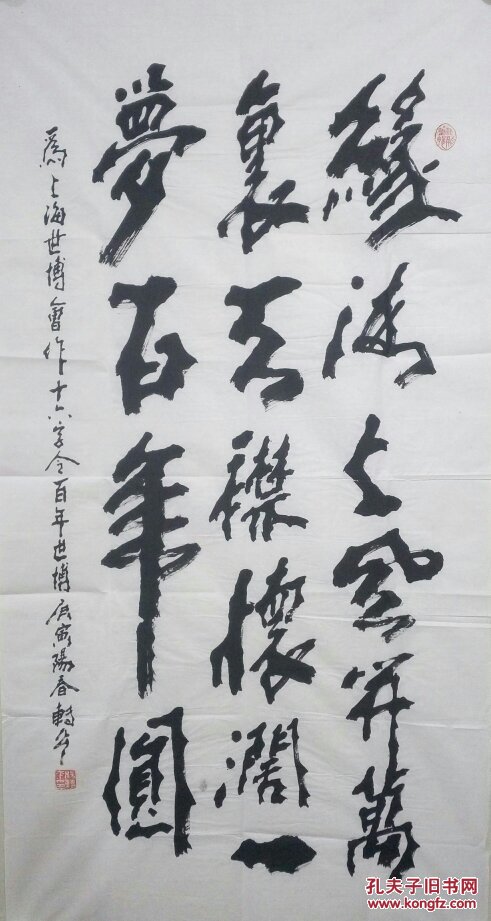 緣海上花开萬
裏天襟懷濶一
夢百年圓
爲上海世博會作十六字令百年世博庚寅陽春
孔夫子旧书网
www.kongfz.com